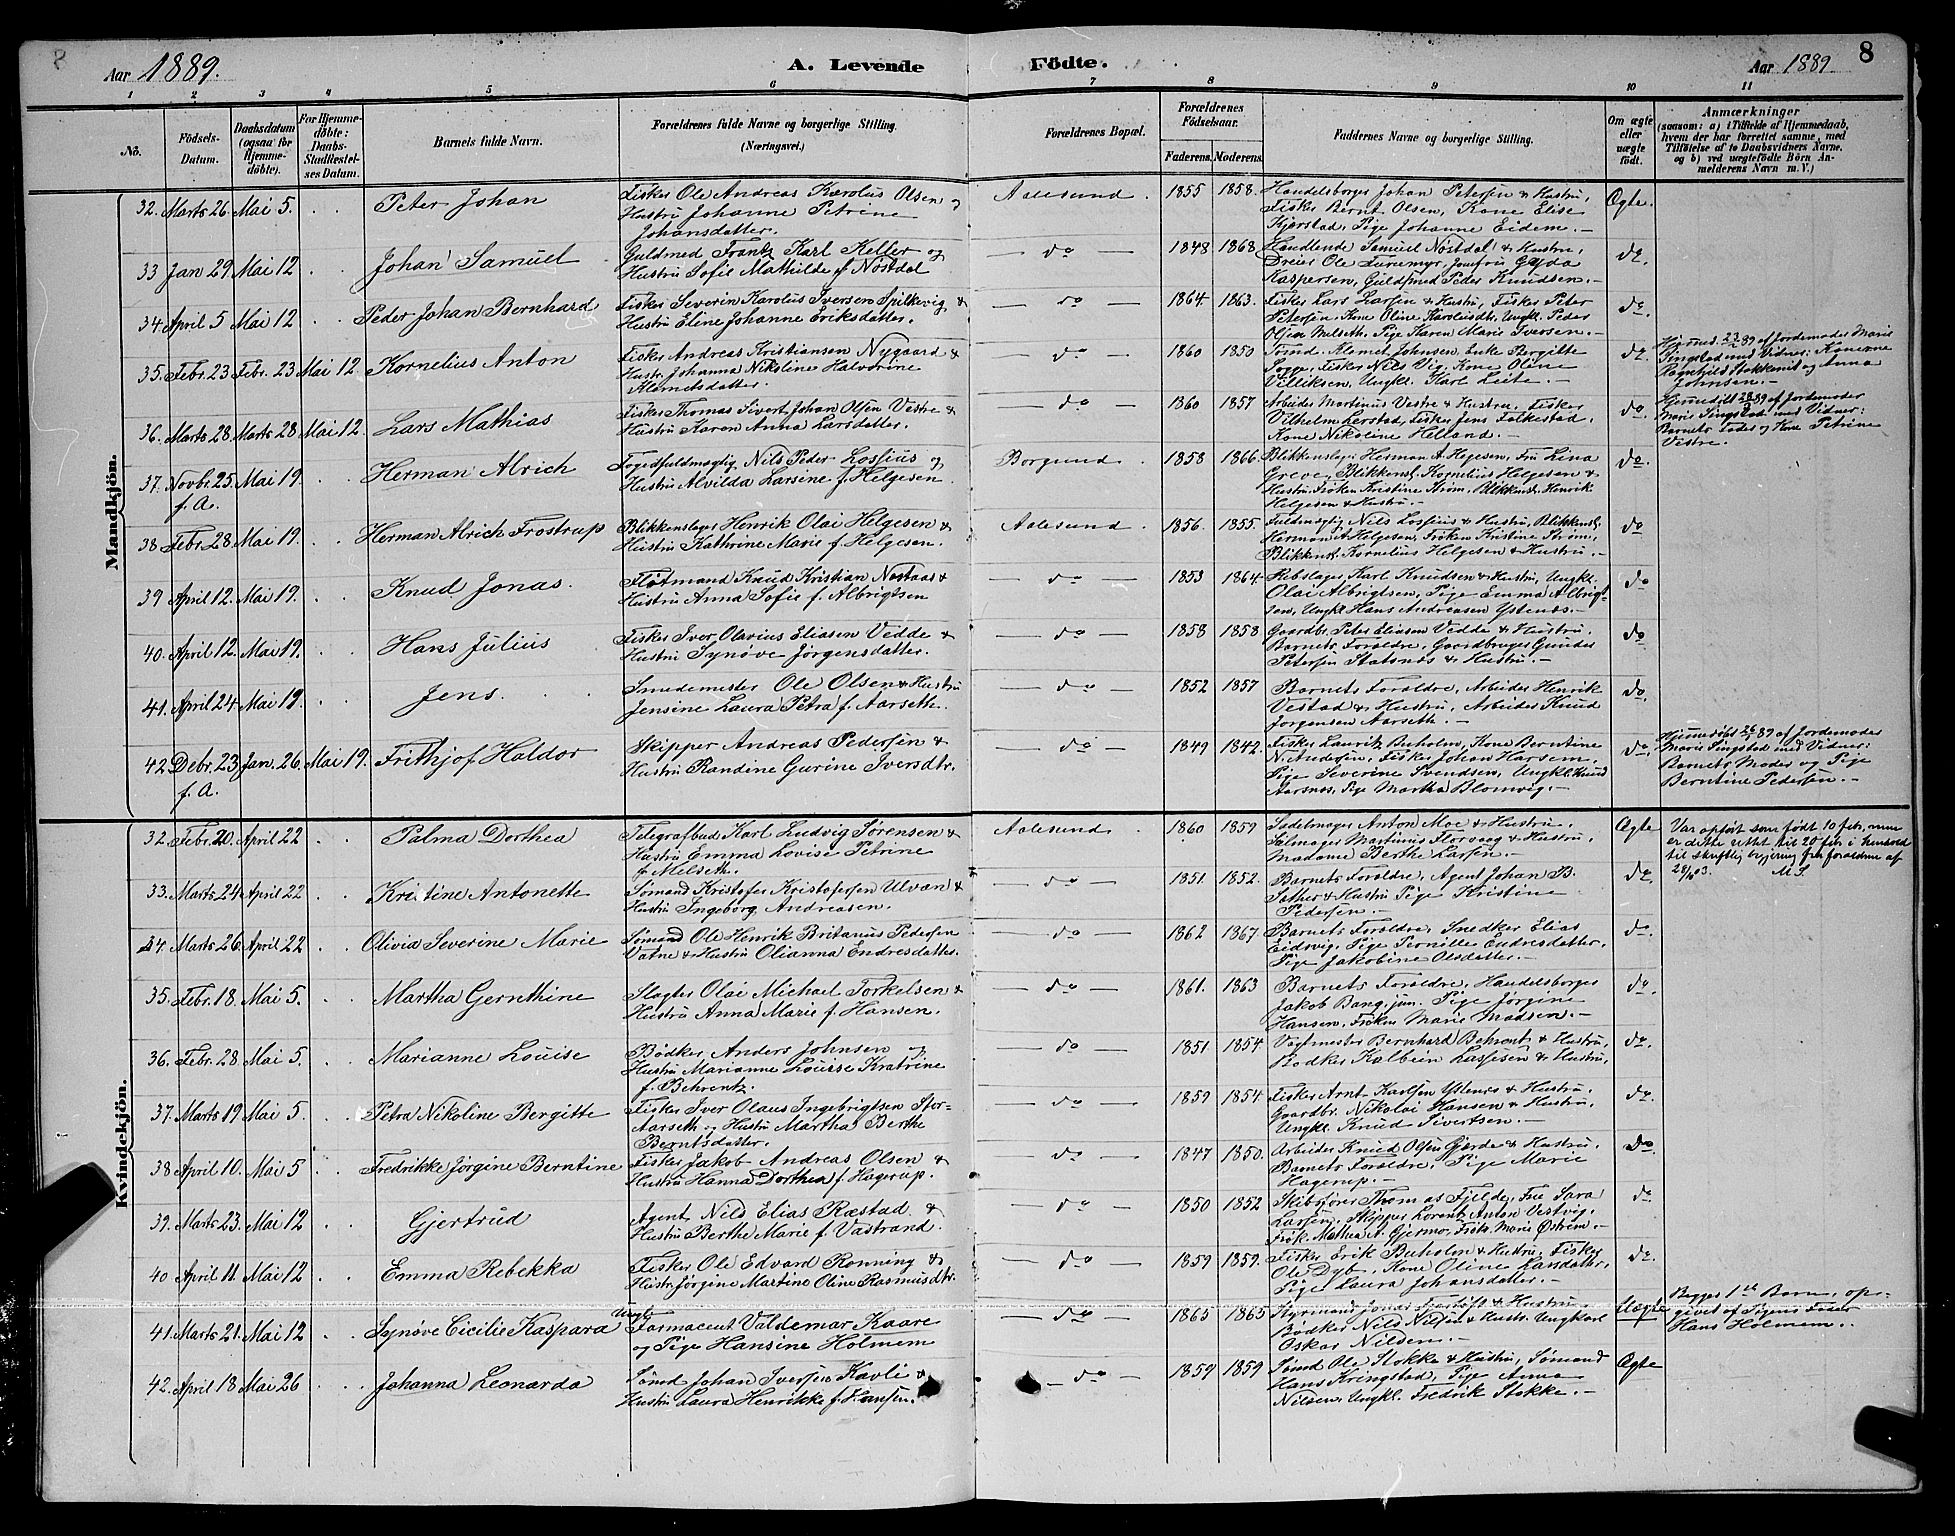 Aar 1889. A. Levende Fødte. Aar 1889. 8
1 2 3 4 5 6 7 8 9 10 11
No.
Fødsels-Datum.
Daabsdatum (ogsaa for Hjemmedøbte).
For Hjemmedøbte: Daabs-Stadfæstelses Datum.
Barnets fulde Navn.
Forældrenes fulde Navne og borgerlige Stilling. (Næringsvei.)
Forældrenes Bopæl.
Forældrenes Fødselsaar. Faderens. Moderens.
Faddernes Navne og borgerlige Stilling.
Om ægte eller uægte født.
Anmærkninger (saasom: a) i Tilfælde af Hjemmedaab, hvem der har forrettet samme, med Tilføielse af to Daabsvidners Navne, og b) ved uægtefødte Børn Anmelderens Navn m. V.)
Mandkjön.
32. Marts 26. Mai 5. Peter Johan
Fisker Ole Andreas Karolus Olsen og
Hustru Johanne Petrine
Johansdatter.
Aalesund. 1855 1858.
Handelsborger Johan Petersen & Hustru,
Fisker Bernt Olsen, Kone Elise
Kjørstad, Pige Johanne Eidem.
Ægte.
33 Jan 29. Mai 12 Johan Samuel
Guldmed Frantz Karl Keller og
Hustru Sofie Mathilde f. Nøstdal
do 1848 1868.
Handlende Samuel Nøstdal & Hustru,
Dreier Ole Furemyr, Jomfru Gyda
Kaspersen, Guldsmed Peder Knudsen.
do.
34 April 5 Mai 12 Peder Johan Bernhard
Fisker Severin Karolius Iversen Spilkevig &
Hustru Eline Johanne Eriksdatter.
do 1864. 1863.
Fisker Lars Larsen & Hustru, Fisker Peter
Petersen, Kone Oline Karolusdt, Ungkl. Peder
Olsen Melseth, Pige Karen Marie Iversen.
do.
35. Febr. 23 Febr. 23 Mai 12 Kornelius Anton
Fisker Andreas Kristiansen Nygaard &
Hustr. Johanna Nikoline Halvorine
Klemetsdatter.
do 1860 1850
Tømd. Klemet Johnsen, Enke Bergitte
Sogge, Fisker Nils Vig, Kone Oline
Villiksen, Ungkl. Karl Leite.
do.
Hjemmed. 23/2 89 af Jordemoder Marie
Singstad med Vidner: Konerne
Ragnhild Stokkenit og Anna
Johnsen.
36. Marts 28 Marts 28 Mai 12. Lars Mathias
Fisker Thomas Sivert Johan Olsen Vestre &
Hustru Karen Anna Larsdatter.
do 1860 1857
Arbeider Martinus Vestre & Hustru, Fisker
Vilhelm Lerstad, Fisker Jens Falkestad,
Kone Nikoline Helland.
do.
Hjemmedøbt 28/3 89 af Jordemoder
Marie Singstad med Vidner:
Barnets Fader og Kone Petrine
Vestre.
37. Novbr. 25. Mai 19. Herman Alrich
f. A.
Fogedfuldmægtig Nils Peder Lossius og
Hustru Alvilda Larsine f. Helgesen
Borgund. 1858 1866.
Blikkenslager Herman A. Helgesen, Fru Lina
Greve, Blikkensl. Kornelius Helgesen &
Hustru, Frøken Kristine Strøm, Blikkensl. Henrik
Helgesen & Hustru.
do.
38 Febr. 28 Mai 19. Herman Alrich Frostrup
Blikkenslager Henrik Olai Helgesen &
Hustru Kathrine Marie f. Helgesen.
Aalesund. 1856. 1855.
Fuldmægtig Nils Lossius & Hustru, Blikkensl.
Herman A Helgesen, Frøken Kristine Strøm,
Blikkensl. Kornelius Helgesen & Hustru.
do
39 April 12. Mai 19. Knud Jonas.
Fløtmand Knud Kristian Nøstaas &
Hustru Anna Sofie f. Albrigtsen
do 1853 1864.
Rebslager Karl Knudsen & Hustru, Ungkl.
Olai Albrigtsen, Pige Emma Albrigt-
sen, Ungkl Hans Andreasen Ystenæs.
do
40. April 12. Mai 19. Hans Julius
Fisker Iver Olavius Eliasen Vedde &
Hustru Synøve Jørgensdatter.
do 1858 1858
Gaardbr. Peter Eliasen Vedde & Hustru,
Barnets Forældre, Gaardbruger Gunder
Petersen Slatsnæs & Hustru.
do
41. April 24. Mai 19. Jens.
Smedemester Ole Olsen & Hustru
Jensine Laura Petra f. Aarseth.
do 1852 1857
Barnets Forældre, Arbeider Henrik
Vestad & Hustru, Arbeider Knud
Jørgensen Aarseth.
do.
42 Debr. 23 Jan. 26. Mai 19. Frithjof Haldor
f. A.
Skipper Andreas Pedersen &
Hustru Randine Gurine Iversdtr.
do 1849 1842.
Fisker Lauritz Buholm, Kone Berntine
N. Andersen, Fisker Johan Harsem,
Pige Severine Svendsen, Ungkl. Knud
Aarsnæs, Pige Martha Blomvig.
do.
Hjemmedøbt 26/1 89 af Jordemoder
Marie Singstad med Vidner:
Barnets Moder og Pige
Berntine Pedersen.
Kvindekjön.
32. Febr. 20. April 22 Palma Dorthea
Telegrafbud Karl Ludvig Sørensen &
Hustru Emma Lovise Petrine
f. Melseth.
Aalesund. 1860 1859
Sadelmager Anton Moe & Hustru,
Salmager Martinus Florvaag & Hustru,
Madame Berthe Larsen.
Ægte
Var opført som født 10 febr., men
er dette rettet til 20 febr. i henhold
til skriftlig begjæring fra forældrene af
M.S.
33. Marts 24 April 22 Kristine Antonette
Sømand Kristofer Kristofersen Ulvan &
Hustru Ingeborg Andreasen.
do 1851. 1852.
Barnets Forældre, Agent Johan B.
Sæther & Hustru Pige Kristine
Pedersen.
do
34. Marts 26. April 22 Olivia Severine Marie
Sømand Ole Henrik Britanus Pedersen
Vatne & Hustru Olianna Endresdatter.
do 1862 1867.
Barnets Forældre, Snedker Elias
Eidsvig, Pige Pernille Endresdatter,
Pige Jakobine Olsdatter.
do.
35. Febr. 18. Mai 5. Martha Gernthine
Slagter Olai Michael Torkelsen &
Hustru Anna Marie f. Hansen.
do 1861. 1863
Barnets Forældre, Handelsborger
Jakob Bang jun., Pige Jørgine
Hansen, Frøken Marie Madsen.
do.
36. Febr. 28 Mai 5. Marianne Louise
Bødker Anders Johnsen og
Hustru Marianne Louise Kratrine
f. Behrentz.
do 1851 1854
Vagtmester Bernhard Behrent & Hustru,
Bødker Kolbein Lassesen & Hustru,
do.
37. Marts 19 Mai 5. Petra Nikoline Bergitte
Fisker Iver Olaus Ingebrigtsen Stor-
Aarseth og Hustru Martha Berthe
Berntsdatter.
do 1859 1854
Fisker Arnt Karlsen Ystenes & Hustru.
Gaardbr. Nikolai Hansen & Hustru,
Ungkl. Knud Sivertsen.
do.
38 April 10. Mai 5 Fredrikke Jørgine Berntine
Fisker Jakob Andreas Olsen &
Hustru Hanna Dorthea f. Hagerup.
do 1847 1850.
Arbeider Knud Olsen Gjærde & Hustru.
Barnets Forældre, Pige Marie
Hagerup.
do.
39. Marts 23. Mai 12 Gjertrud
Agent Nils Elias Ræstad &
Hustru Berthe Marie f. Vastrand.
do 1850 1852
Skibsfører Thomas Fjelde, Frue Sara
Larsen, Skipper Lorentz Anton Vestvig,
Frøk. Mathea A. Gjermo, Frøk. Marie Østrem.
do
40 April 11. Mai 12 Emma Rebekka
Fisker Ole Edvard Rønning &
Hustr. Jørgine Martine Oline Rasmusdtr.
do 1859 1859.
Fisker Erik Buholm & Hustru, Fisker
Ole Dyb, Kone Oline Larsdatter,
Pige Laura Johansdatter.
do.
41. Marts 21. Mai 12 Synøve Cicilie Kaspara
Ungk. Farmaceut Valdemar Kaare
og Pige Hansine Holmem
do 1865 1865
Styrmand Jonas & Hustru,
Bødker Nils Nilsen & Hustr. Ungkarl
Oskar Nilsen.
Uægte
Begges 1ste Barn, op-
givet af Pigens Fader
Hans Holmem.
42. April 18 Mai 26 Johanna Leonarda
Sømd Johan Iversen Kavli &
Hustru Laura Henrikke f. Hansen.
do 1859 1859
Sømd Ole Stokke & Hustru, Sømand
Hans Kringstad, Pige Anna
Nilsen, Ungkl. Fredrik Stokke.
Ægte